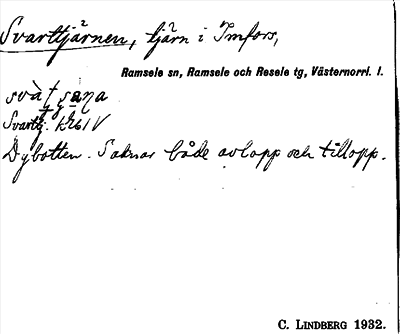 Svarttjärnen, tjärn i Imfors,
Ramsele sn, Ramsele och Resele tg, Västernorrl. l.
Svarttj.
Dybotten. Saknar både avlopp och tillopp.
C. LINDBERG 1932.